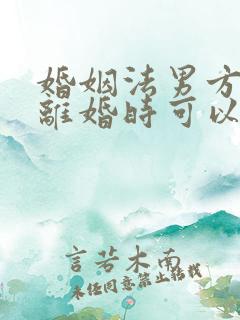 婚姻法男方
離婚時可以
言若木南
未经同意禁止转载